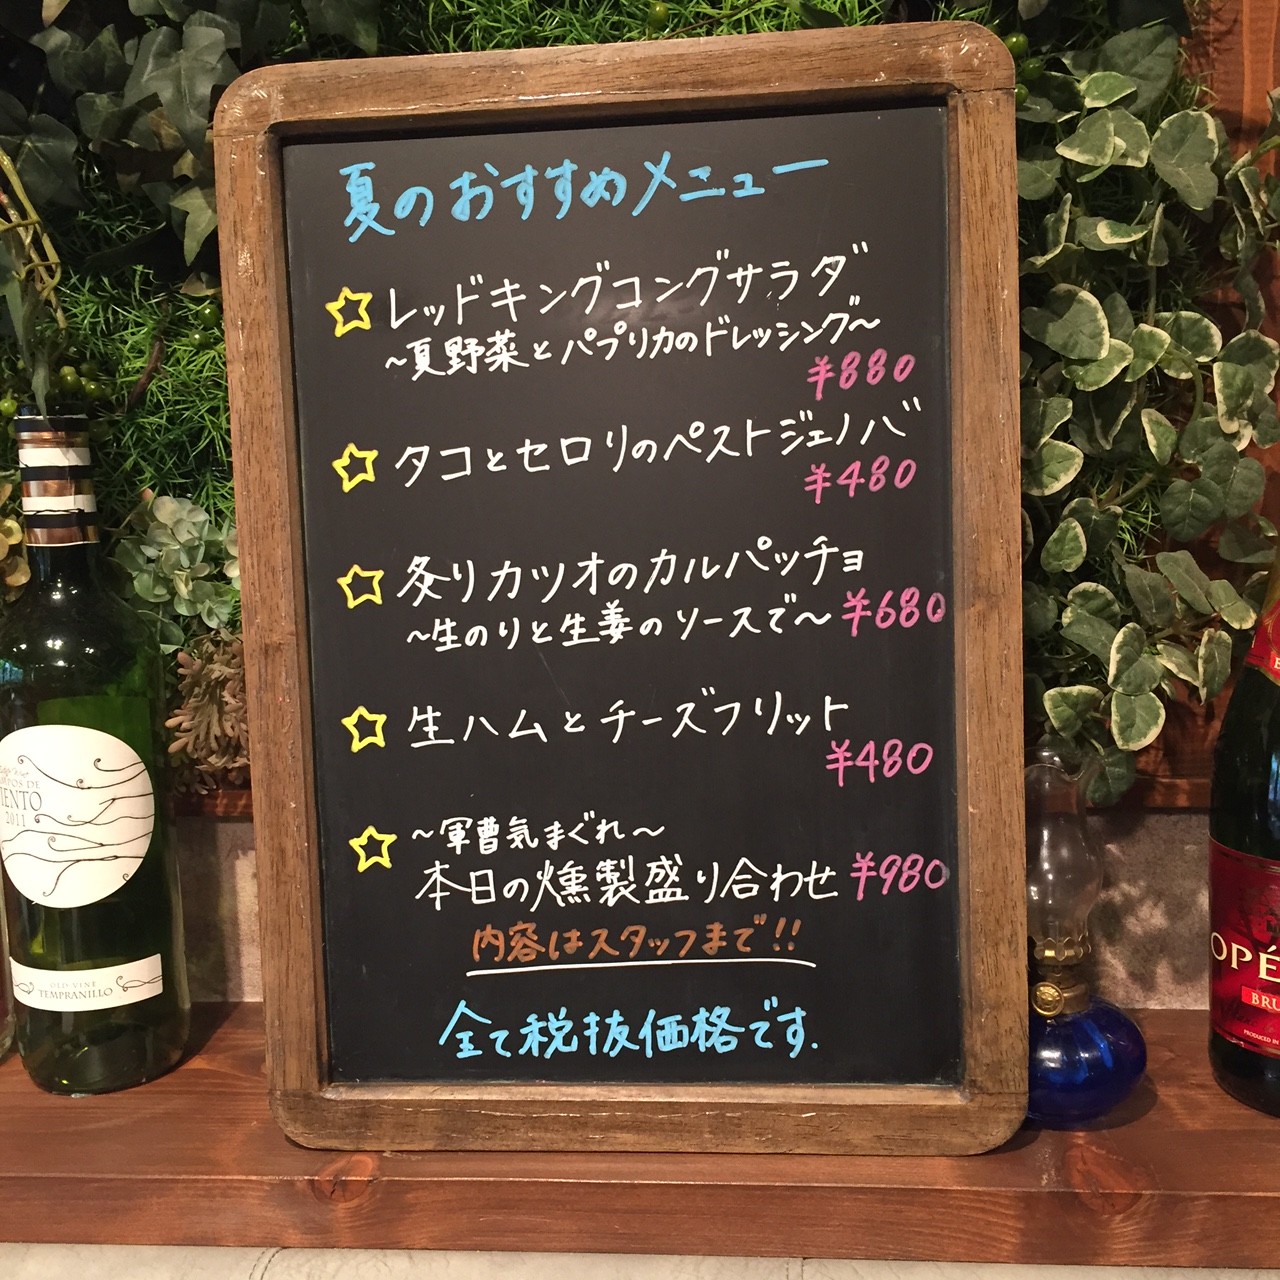 夏のおすすめメニュー
レッドキングコングサラダ
~夏野菜とパプリカのドレッシング~
¥880
タコとセロリのペストジェノバ
¥480
炙りカツオのカルパッチョ
~生のりと生姜のソースで~ ¥680
生ハムとチーズフリット
¥480
~軍曹気まぐれ~
本日の燻製盛り合わせ ¥980
内容はスタッフまで!!
全て税抜価格です.
OS DE
IENTO
2011
OLD VINE
TEMPRANILLO
OPÉ
BRU
PRODUCED IN